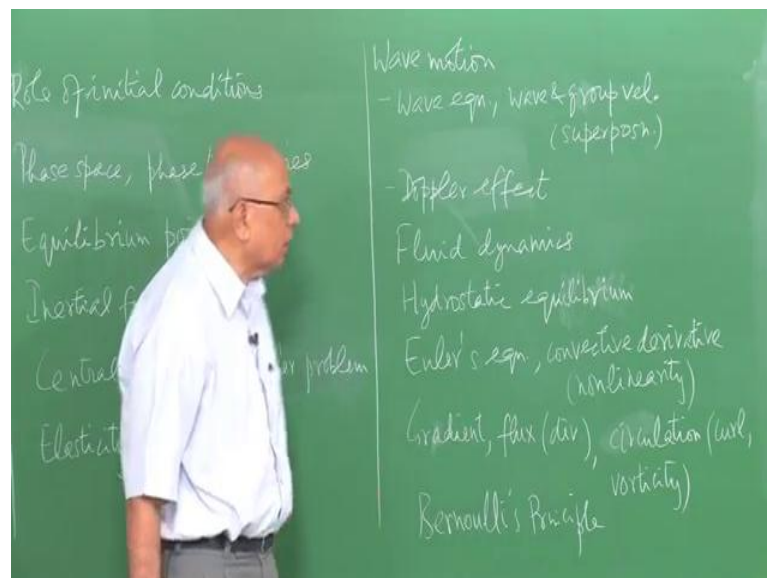 Role of initial conditions
Phase space, phase
Equilibrium
Inertial
Central problem
Wave motion
- Wave eqn., wave & group vel.
(superposn.)
- Doppler effect
Fluid dynamics
Hydrostatic equilibrium
Euler's eqn., convective derivative
(nonlinearity)
Gradient, flux (div), circulation (curl,
vorticity)
Bernoulli's Principle